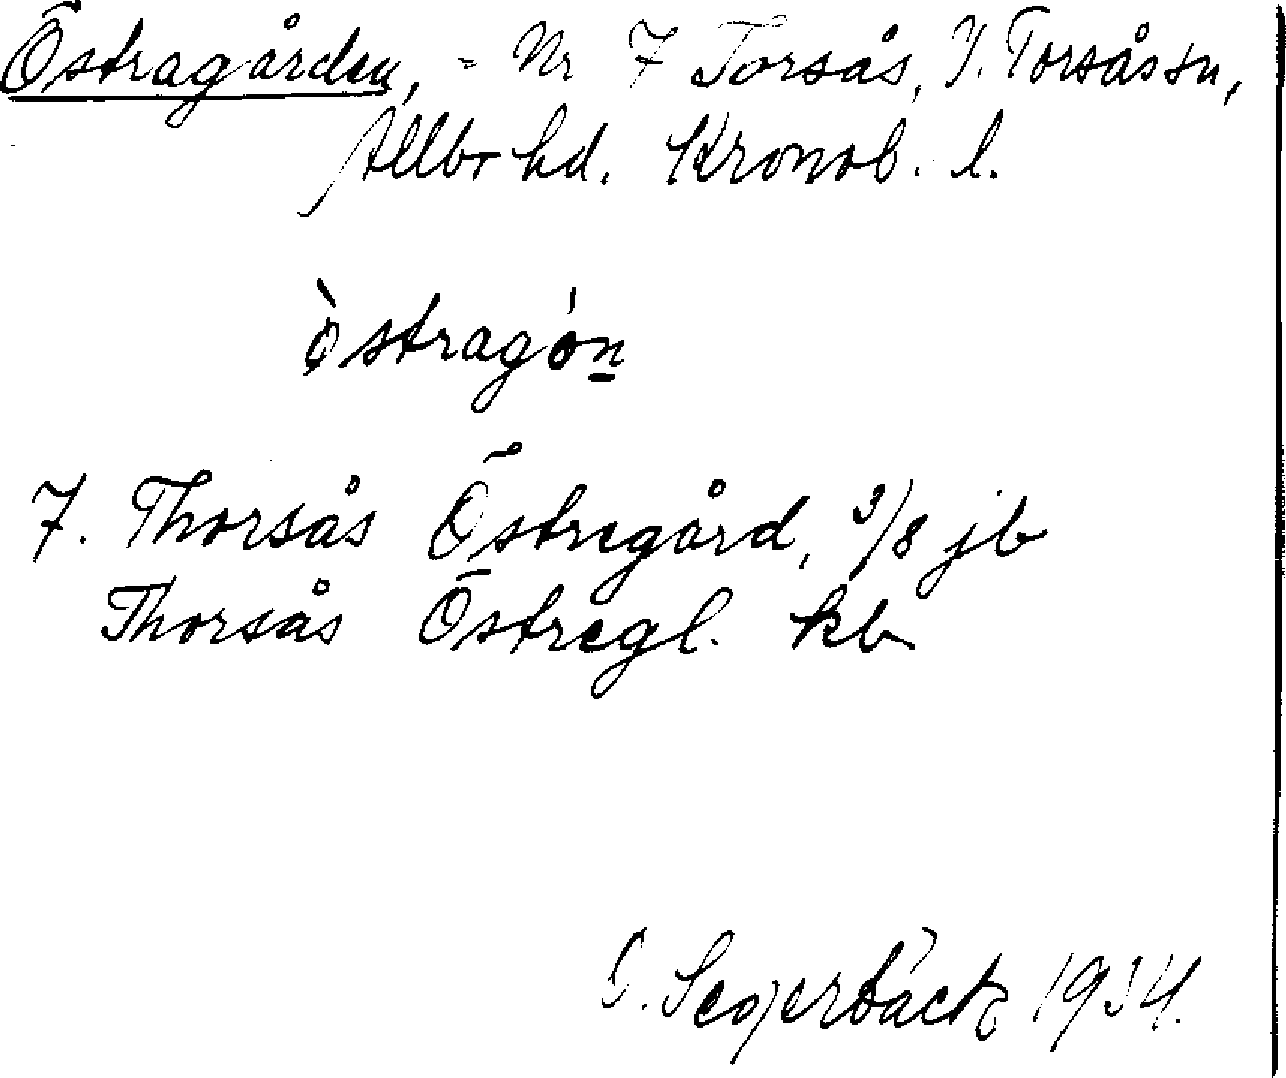 Östragården, - Nr 7 Torsås, V. Torsås sn,
Allbo hd. Kronob. l.
òstragón
7. Thorsås Östregård, 3/8 jb
Thorsås Östregl. kb
Segerbäck 1934.